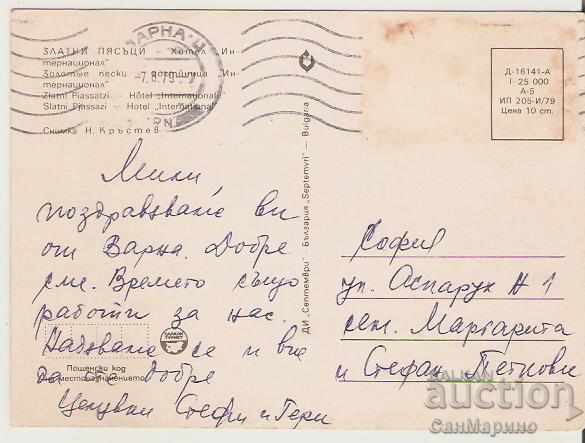 ЗЛАТНИ ПЯСЪЦИ — Хотел „Ин-
тернационал"
Золотые пески — гостиница „Ин-
тернационал"
Zlatni Piassatzi — Hôtel „International"
Slatni Pjassazi — Hotel „International"
Снимка Н. Кръстев
ВАРНА-Ц
-7.8.79
Мили
поздравяваме ви
от Варна. Добре
сме. Времето също
работи за нас.
Надяваме се и вие
да сте добре
Целувки Стефи и Гери
Пощенски код
на местоназначението
БАЛКАН
ТУРИСТ
ДИ „Септември" — България „Septemvri" — Bulgaria
Д-16141-А
I 25 000
А-5
ИП 205-И/79
Цена 10 ст.
София
ул. Аспарух № 1
сем. Маргарита
и Стефан Петкови
BALKAN
auction
СанМарино